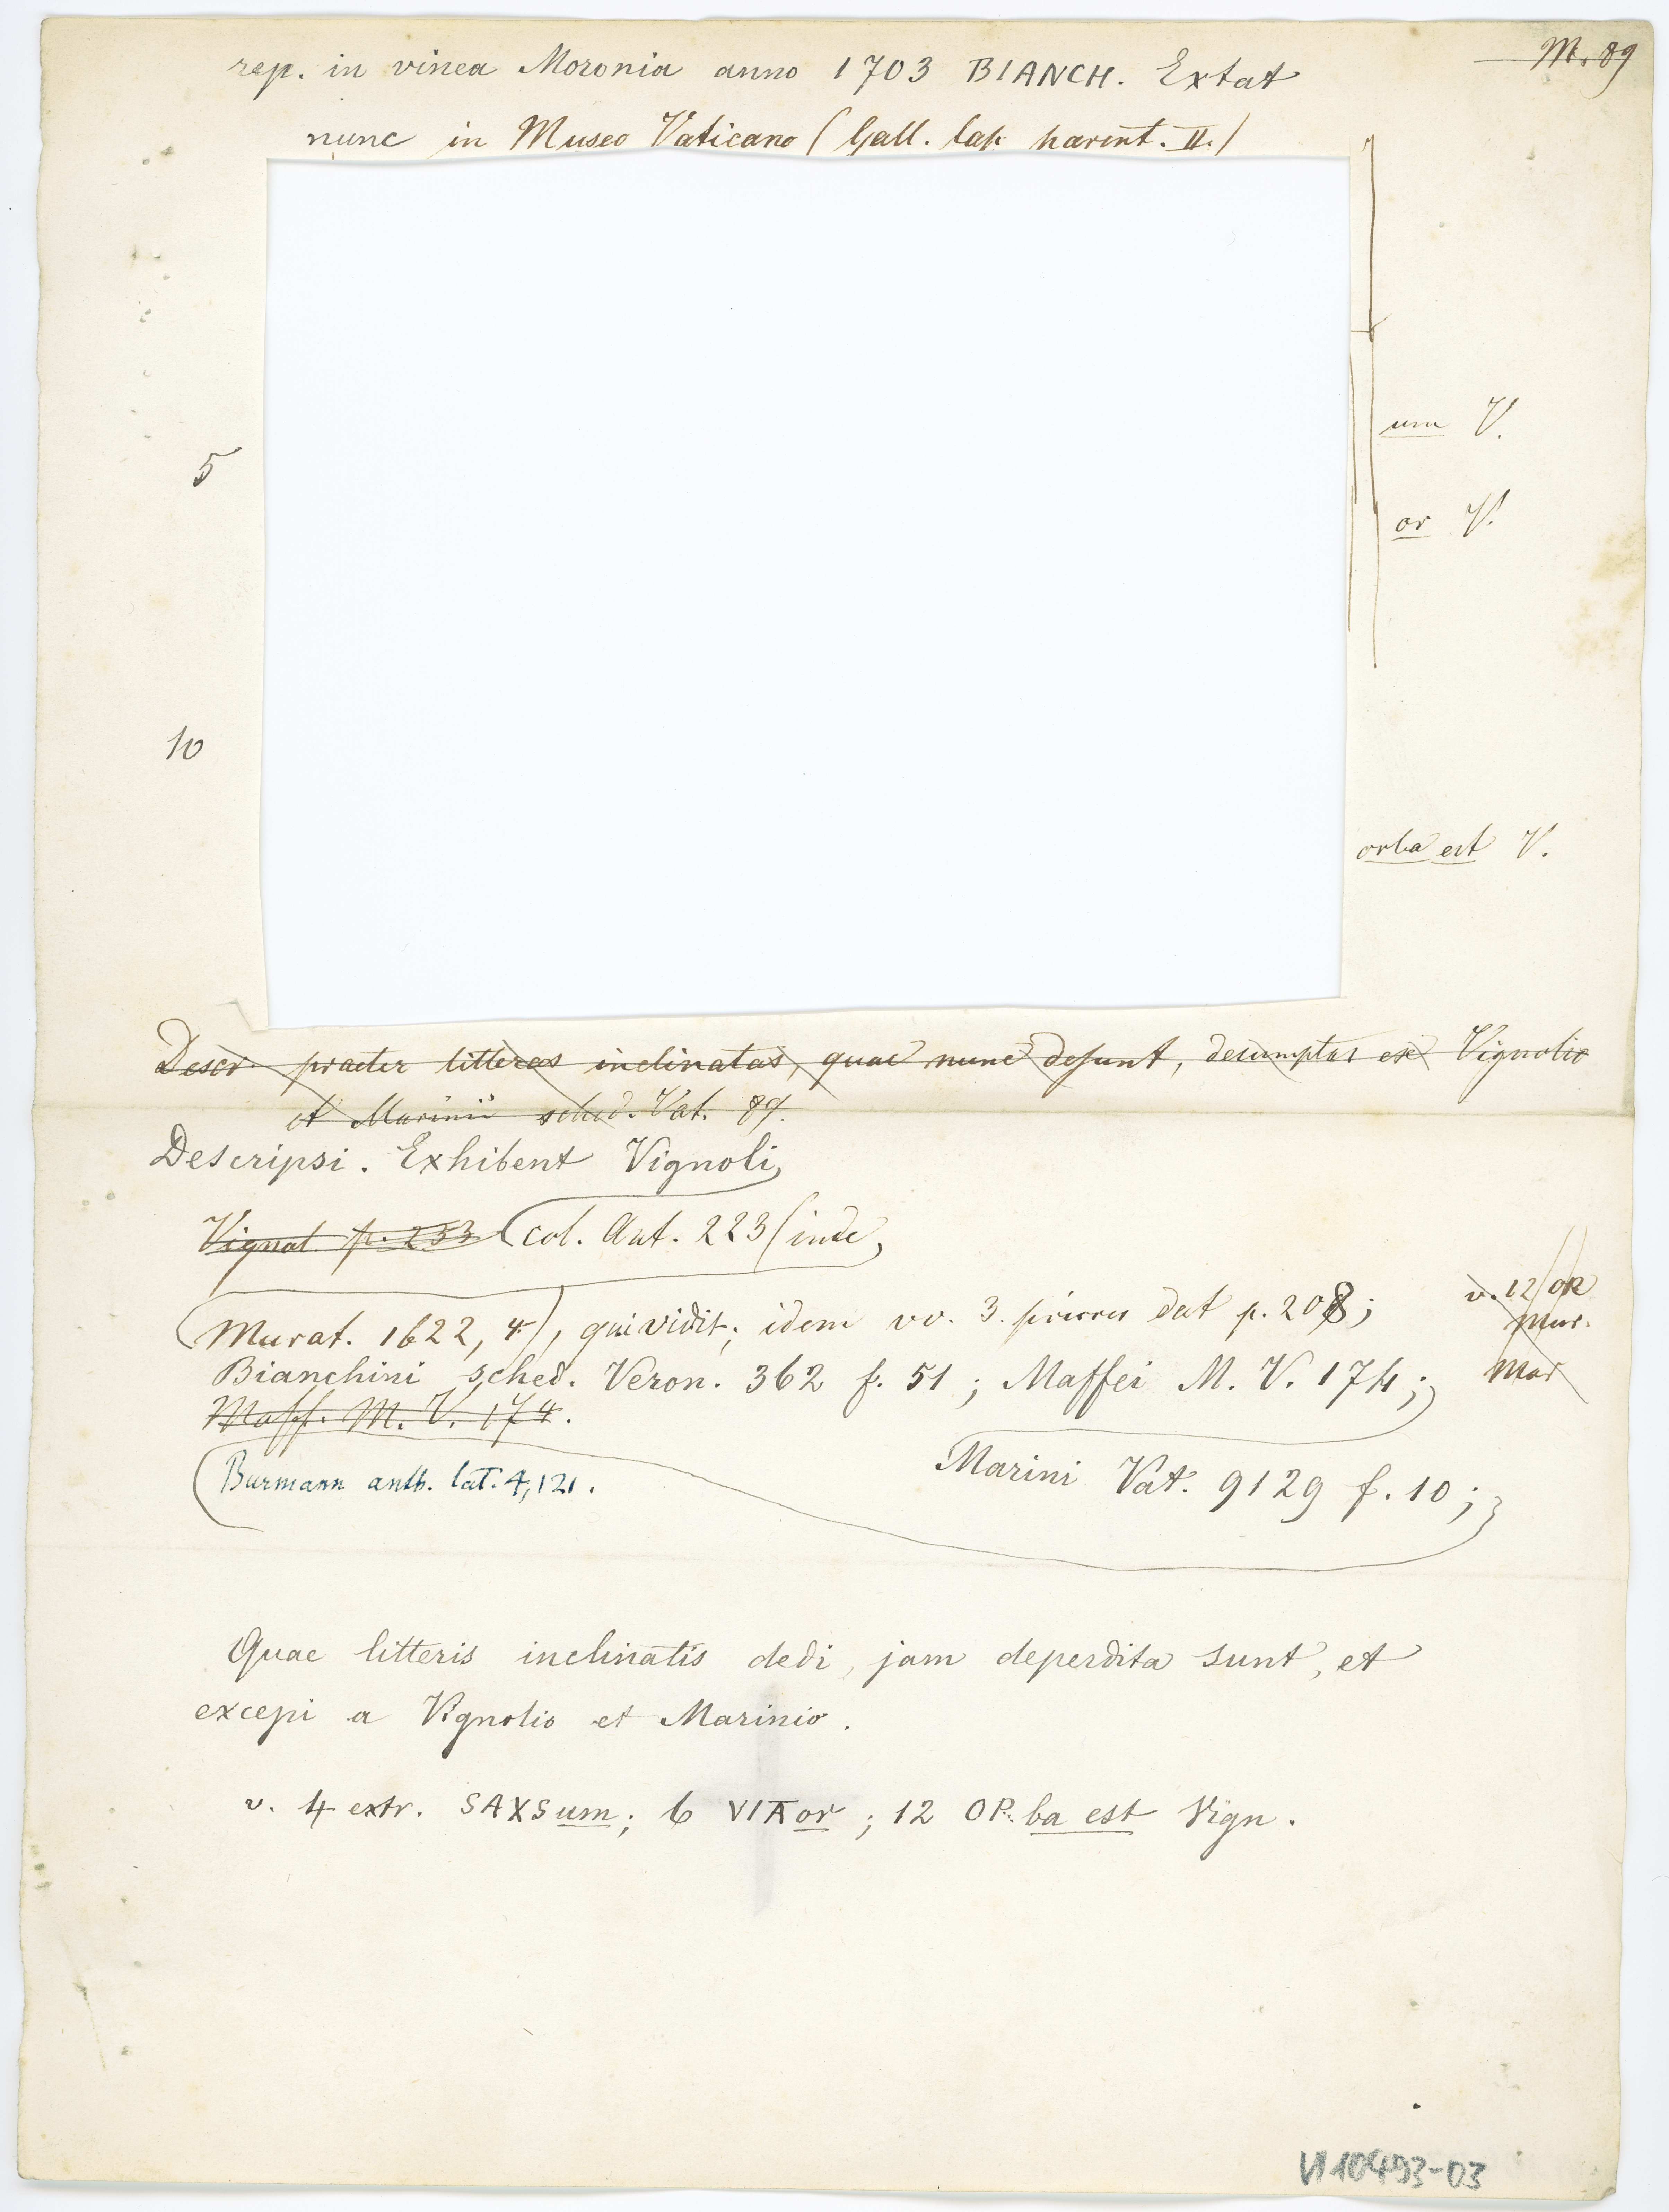 M. 89
rep. in vinea Moronia anno 1703 BIANCH. Extat
nunc in Museo Vaticano (Gall. lap. parent. II.)
um V.
5
or V.
10
orba est V.
Descr. praeter litteras inclinatas, quae nunc desunt, desumptas ex Vignolio
et Marinii sched. Vat. 89.
Descripsi. Exhibent Vignoli
Vignol p. 233 col. Ant. 223 (inde
Murat. 1622, 4), qui vidit; idem vv. 3. priores dat p. 208;
v. 12 OR
Mur.
Mar
Bianchini sched. Veron. 362 f. 51; Maffei M. V. 174;
Maff. M. V. 174.
Marini Vat. 9129 f. 10;
Burmann anth. lat. 4, 121.
Quae litteris inclinatis dedi, jam deperdita sunt, et
excepi a Vignolio et Marinio.
v. 4 extr. SAXSum; 6 VITAor; 12 OR ba est Vign.
VI 10493-03